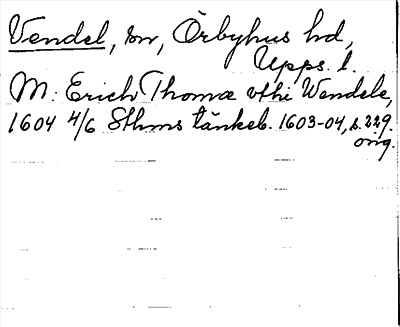 Vendel, sn, Örbyhus hd,
Upps. l.
M. Erich Thomæ vthi Wendele,
1604 4/6 Sthms tänkeb. 1603-04, s. 229.
orig.